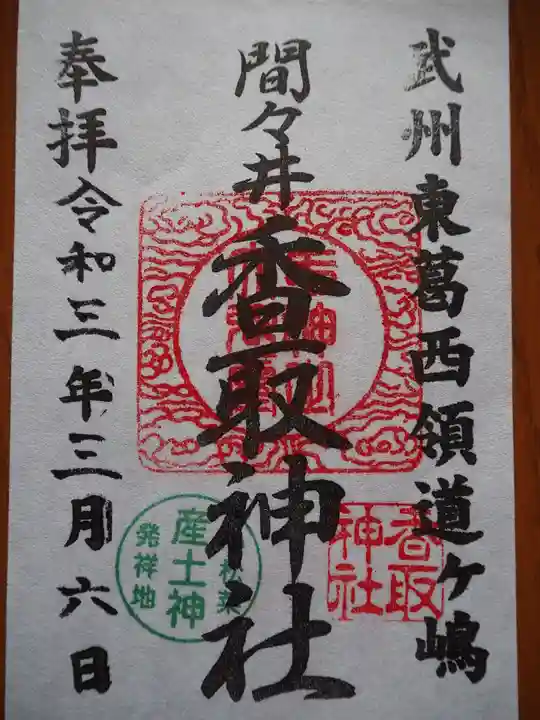 武州東葛西領道ヶ嶋
間々井香取神社
奉拝令和三年三月六日
香取
神社
産土神
発祥地